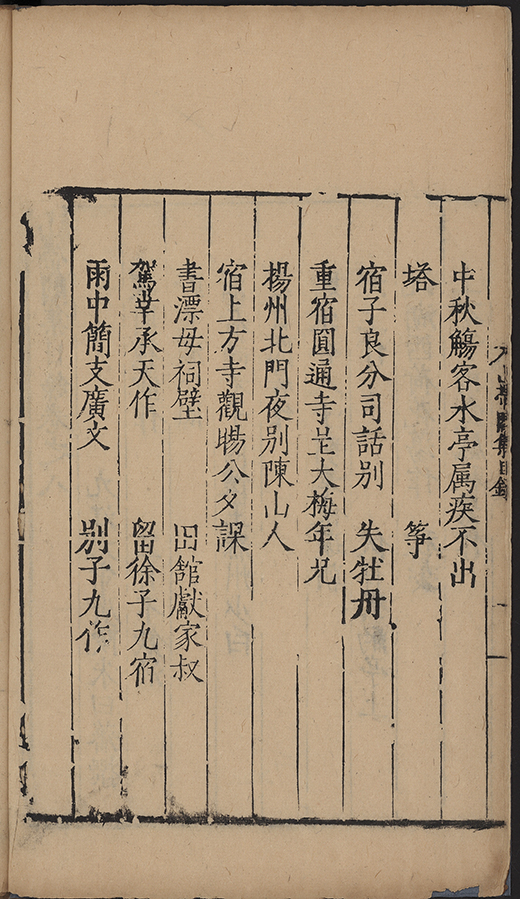 目錄
中秋觴客水亭属疾不出
塔 筝
宿子良分司話別 失牡丹
重宿圓通寺呈大梅年兄
楊州北門夜別陳山人
宿上方寺觀暘公夕課
書漂母祠壁 田館獻家叔
駕幸承天作 留徐子九宿
雨中簡支廣文 別子九作